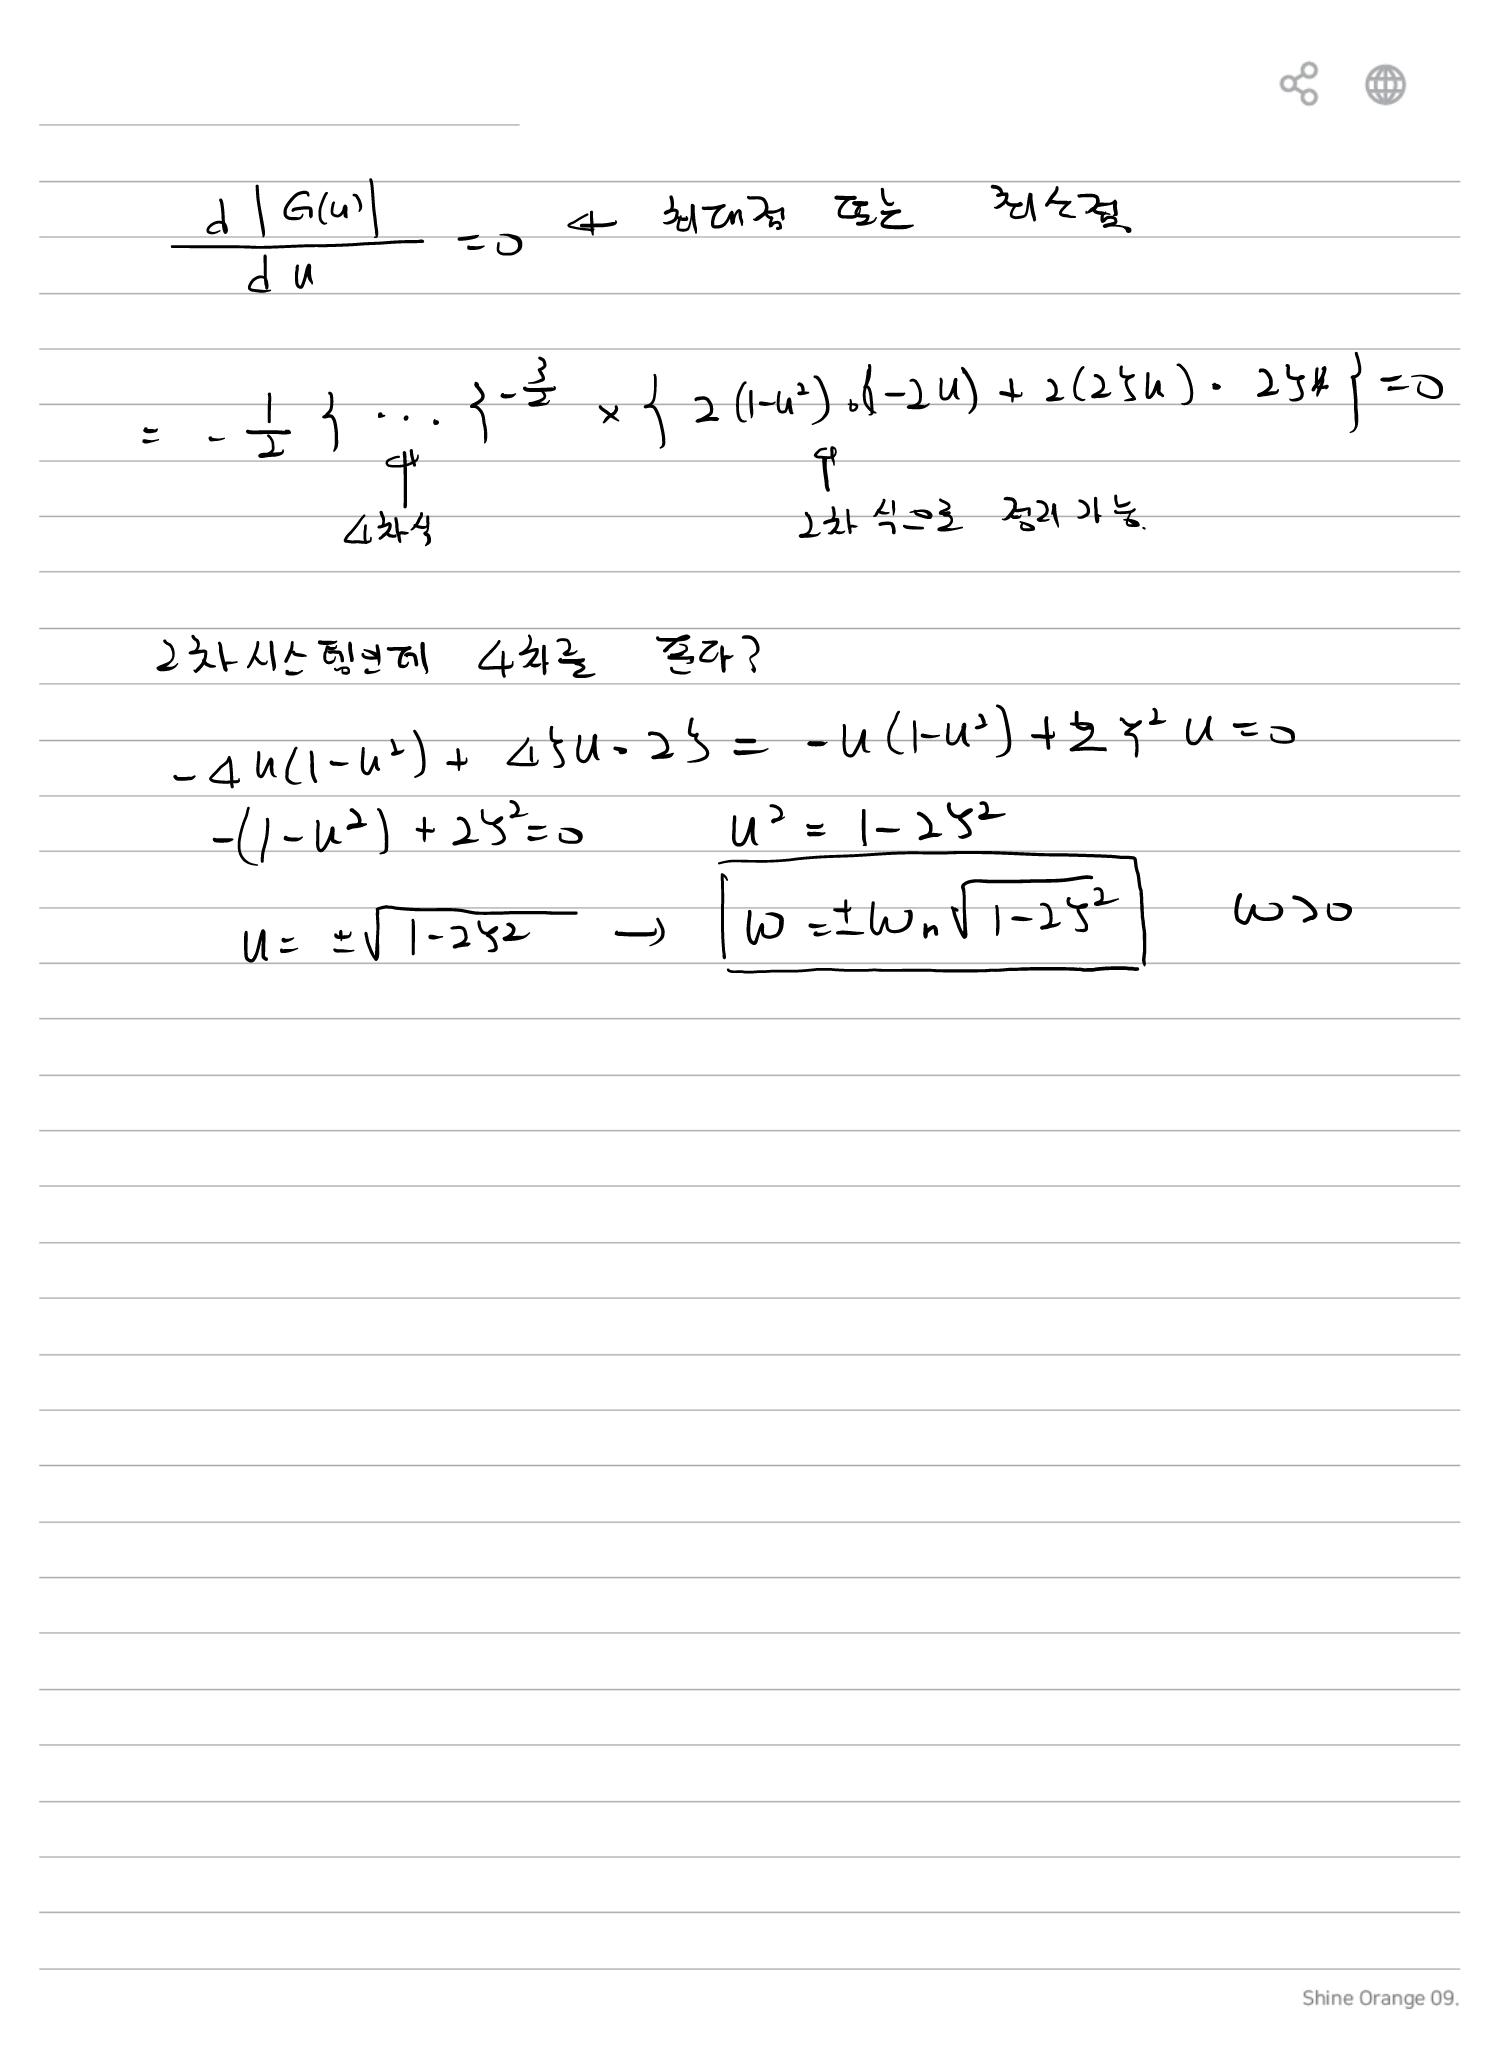 d|G(u)| / du = 0 ← 최대점 또는 최소점
= - 1/2 { ... }^(-3/2) × { 2(1-u²)·(-2u) + 2(2ζu)· 2ζ } = 0
4차식 2차식으로 정리 가능.
2차시스템인데 4차를 푼다?
-4u(1-u²) + 4ζu·2ζ = -u(1-u²) + 2ζ²u = 0
-(1-u²) + 2ζ² = 0 u² = 1-2ζ²
u = ±√(1-2ζ²) → ω = ±ωn√(1-2ζ²) ω>0
Shine Orange 09.